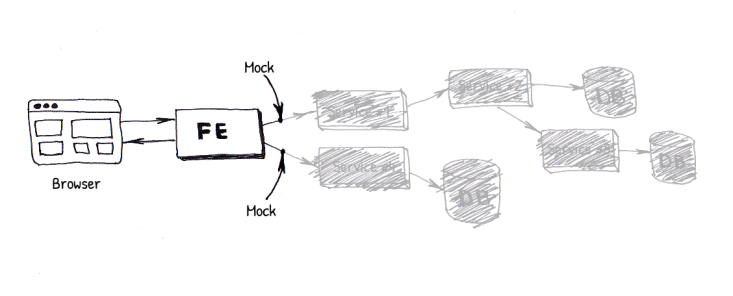 Mock
Browser
FE
Mock
Service #1
Service #2
DB
Service #3
DB
Service #4
DB